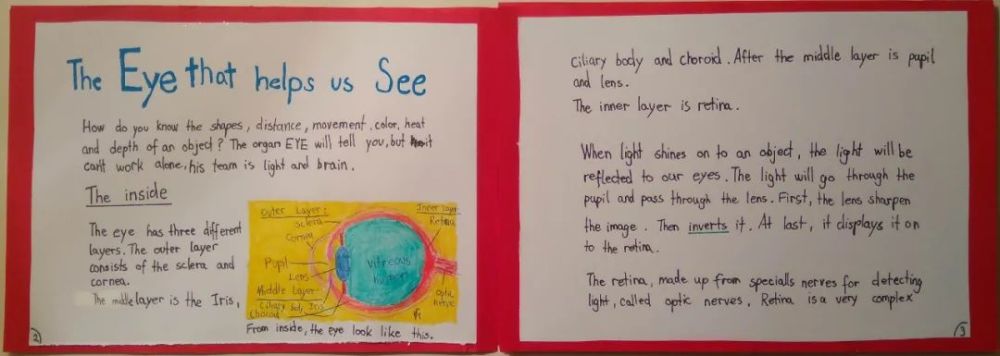 The Eye that helps us See
How do you know the shapes, distance, movement, color, heat
and depth of an object? The organ EYE will tell you, but it
can't work alone, his team is light and brain.
The inside
The eye has three different
layers. The outer layer
consists of the sclera and
cornea.
The middle layer is the Iris,
Outer Layer:
Sclera
Cornea
Pupil
Lens
Middle Layer
Ciliary Body Iris
Choroid
Vitreous
humor
Inner layer
Retina
Optic
nerve
From inside, the eye look like this.
2
ciliary body and choroid. After the middle layer is pupil
and lens.
The inner layer is retina.
When light shines on to an object, the light will be
reflected to our eyes. The light will go through the
pupil and pass through the lens. First, the lens sharpen
the image. Then inverts it. At last, it displays it on
to the retina.
The retina, made up from specialls nerves for detecting
light, called optic nerves, Retina is a very complex
3